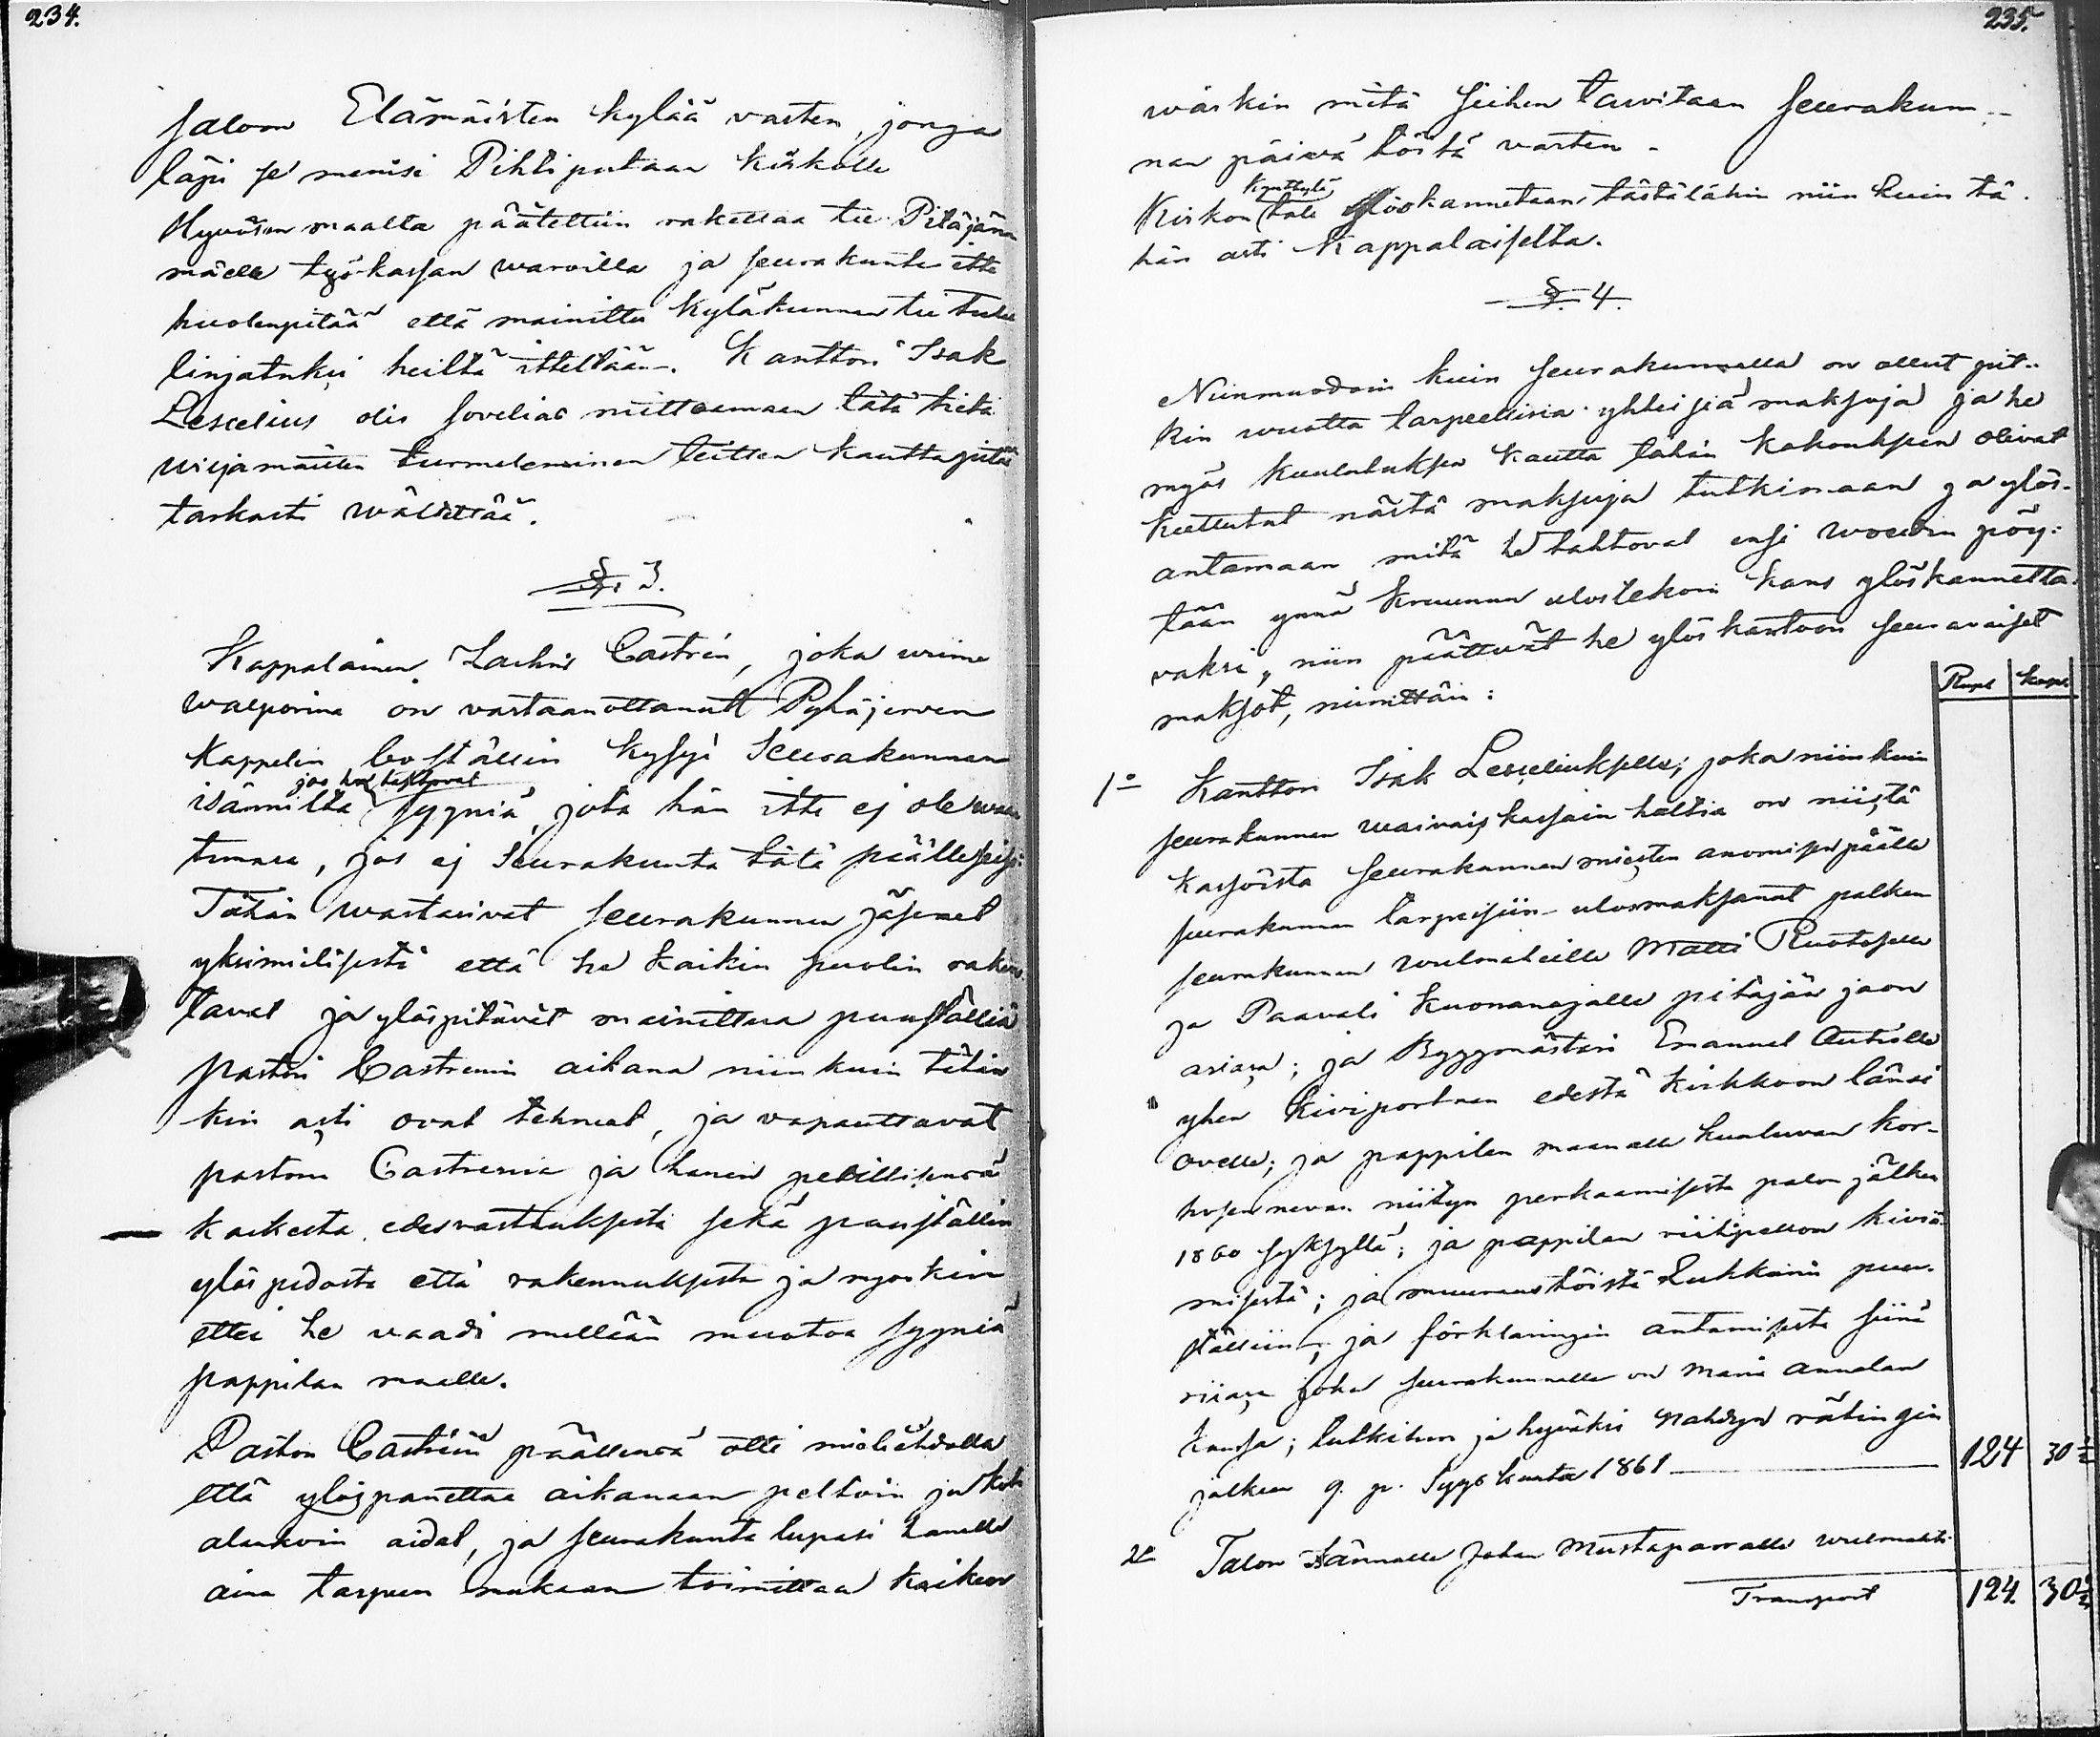 234.
saloon Elämäisten kylää vasten, jonga
läpi se menisi Pihtiputaan kirkolle
Hyvösen maalta päätettiin rakettaa tie Pitäjän
mäelle työkassan varoilla ja seurakunta itte
huolenpitää että mainittu kyläkunnan tie tulee
linjatuksi heiltä itteltään. Kanttori Isak
Lescelius olis sovelias mittaamaan tätä tietä
viljamaitten turmeleminen teitten kautta pitää
tarkasti wälttää.
§. 3.
Kappalainen Zachris Castrén, joka viime
walporina on vastaanottanutt Pyhäjerven
Kappelin boställin kysyi Seurakunnan
jos he tahtovat
isänniltä syyniä, jota hän itte ej ole waa
timassa, jos ej Seurakunta tätä päälleseiso.
Tähän wastasivat seurakunnan jäsenet
yksimielisesti että he kaikin puolin raken
tavat ja ylöspitävät mainittua puuställiä
pastori Castrenin aikana niin kuin tähän
kin asti ovat tehneet, ja vapauttavat
pastori Castrenia ja hänen perillisensä
kaikesta edesvastauksesta sekä puuställin
ylöspidosta että rakennuksesta ja myöskin
ettei he vaadi millään muotoa syyniä
pappilan maalle.
Pastori Castrénin päällensä otti mieliehdolla
että ylöspanettaa aikanaan peltoin ja koti
alankoin aidat, ja seurakunta lupasi hänelle
aina tarpeen mukaan toimittaa kaiken
235.
wärkin mitä siihen tarvitaan seurakun-
nan päivätöitä varten.
Kynttylä
Kirkon tali ylöskannetaan tästälähin niin kuin tä
hän asti Kappalaiselta.
§. 4.
Niinmuodoin kuin seurakunnalla on ollut pit-
kin vuotta tarpeellisia yhteisiä maksuja ja he
myös kuulutuksen kautta tähän kokouksen olivat
kuttutut näitä maksuja tutkimaan ja ylös-
antamaan mitä he tahtovat ensi vuoden pöy-
tään ynnä kruunun ulostekoin kans ylöskannetta-
vaksi, niin päättivät he ylöskantoon seuraavaiset
maksot, nimittäin:
Rupl kop.
1o Kanttori Isak Lesceliukselle; joka niinkuin
seurakunnan waivaiskassain haltia on niistä
kassoista seurakunnan miesten anomisen päälle
seurakunnan tarpeisiin ulosmaksanut palkan
seurakunnan wulmahille Matti Ruotoselle
ja Paavali Kuonanojalle pitäjän jaon
asiasa; ja Byggmästari Emanuel Autiolle
yhen kiviportaan edestä kirkkoon länsi
ovelle; ja pappilan maanalle kuuluvan kor-
hosennevan niityn perkaamisesta palon jälken
1860 syksyllä; ja pappilan riihipellon kiviä-
misestä; ja muuraustöistä Lukkarin puu-
ställiin; ja förklaringin antamisesta siinä
riiasa joka seurakunnalla on Maria Annalan
kanssa; tutkitun ja hyväksi nähdyn rätingin
jälkeen 9. p. Syyskuuta 1861 124 30½
2o Talon Isännälle Johan Mustaparralle wulmahti-
Transport 124. 30½